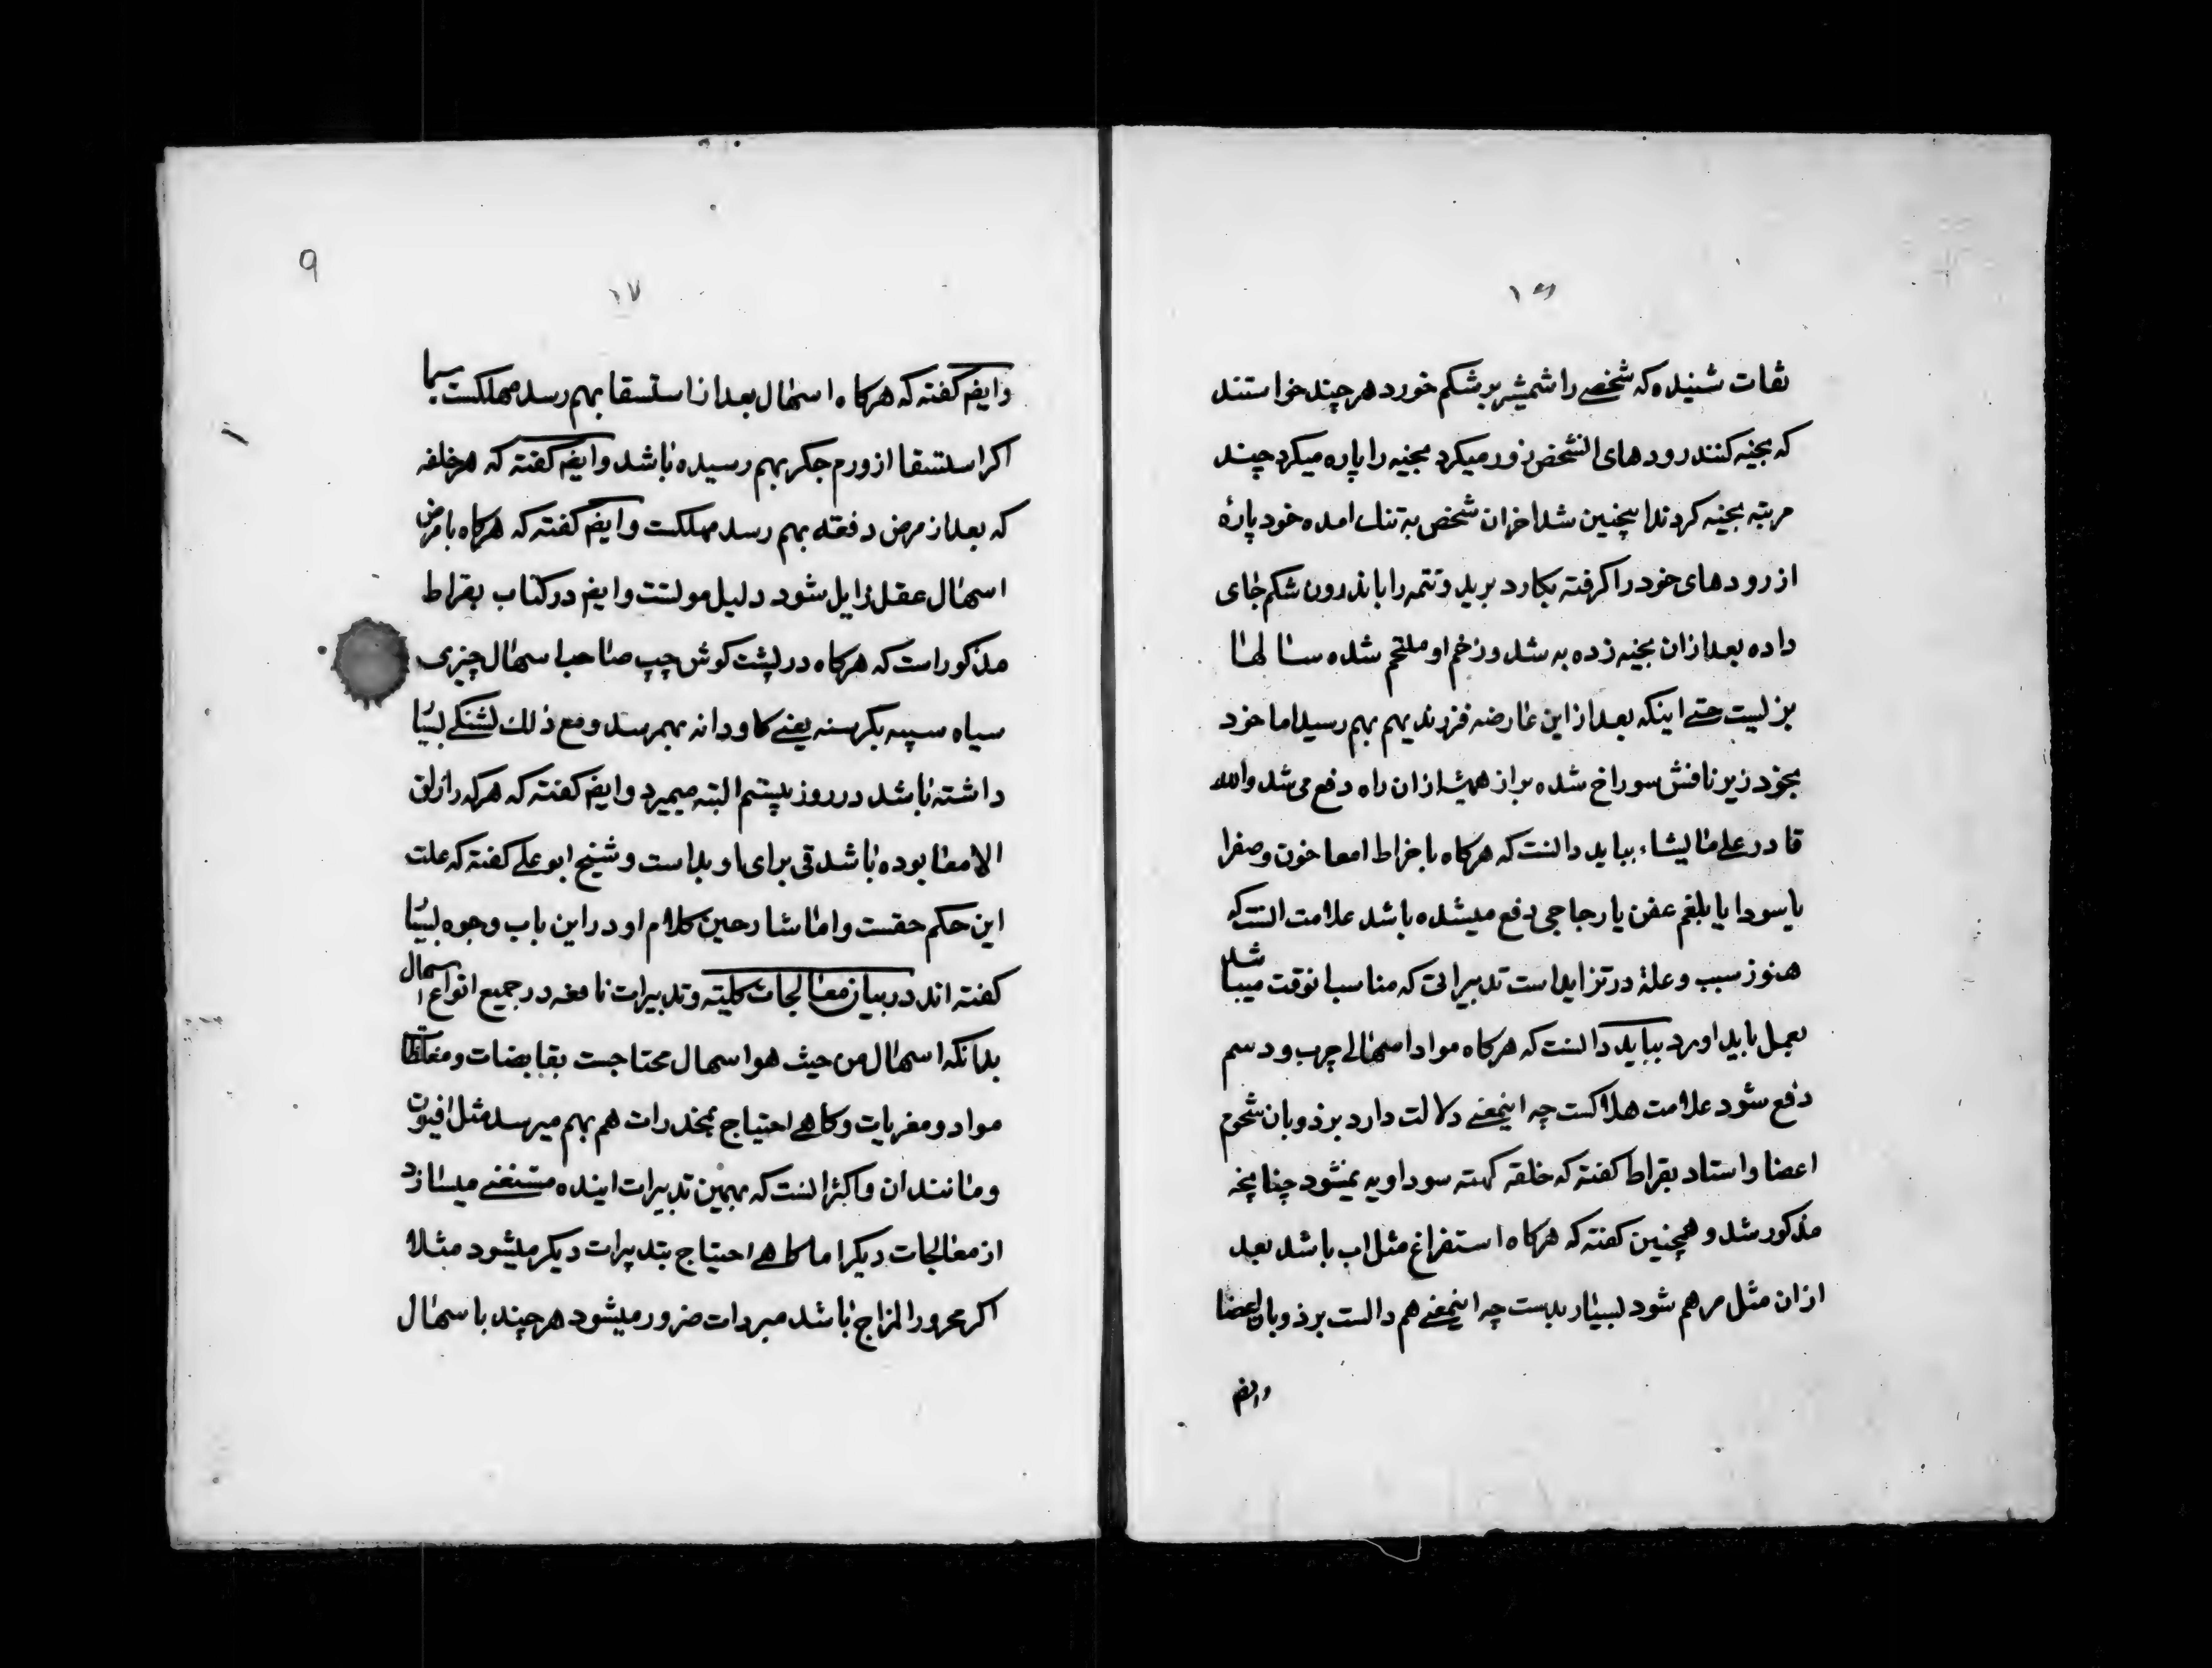 ۱۶
ثقات شنیده که شخصے را شمشیر بر شکم خورد هر چند خواستند
که بخیه کنند رودهای انشخص زور میکرد بخیه را پاره میکرد چند
مرتبه بخیه کردند اینچنین شد اخر ان شخص به تنك امده خود پارهٔ
از رودهای خود را کرفته بکارد برید و تتمه را باندرون شکم جای
داده بعد ازان بخیه زده به شد و زخم او ملتحم شده سالها
بزلیست حتے اینکه بعد از این عارضه فرزندیهم بهم رسید اما خود
بخود زیر نافش سوراخ شده براز همیشه ازان راه دفع می شد والله
قادر علے ما یشاء بباید دانست که هرکاه با خراط امعا خون و صفرا
یا سودا یا بلغم عفن یا زجاجی دفع میشده باشد علامت انست که
هنوز سبب و علة در تزاید است تدبیراتی که مناسب انوقت میباشد
بعمل باید اورد بباید دانست که هرکاه مواد اسهالے چرب و دسم
دفع شود علامت هلاکست چه اینمعنے دلالت دارد بر ذوبان شحوم
اعضا و استاد بقراط کفته که خلقه کهنه سوداویه نمیشود چنانچه
مذکور شد و همچنین کفته که هرکاه استفراغ مثل اب باشد بعد
ازان مثل مرهم شود بسیار بدست چه اینمعنے هم دالست بر ذوبان اعضا
وایضم
۹
۱۷
وایضم کفته که هرکاه اسهال بعد از استسقا بهم رسد مهلکست سیما
اکر استسقا از ورم جکر بهم رسیده باشد وایضم کفته که هر خلفه
که بعد از مرض دفعة بهم رسد مهلکست وایضم کفته که هرکاه با مرض
اسهال عقل زایل شود دلیل موتست وایضم در کتاب بقراط
مذکور است که هرکاه در پشت کوش چپ صاحب اسهال چیزی
سیاه سپیه بکرسنه یعنے کاودانه بهمرسد و مع ذلك تشنکے بسیار
داشته باشد در روز بیستم البته میمیرد وایضم کفته که هرکه را زلق
الامعا بوده باشد قی برای او بد است و شیخ ابو علے کفته که علت
این حکم حقست و اما شارحین کلام او در این باب وجوه بسیار
کفته اند در بیان معالجات کلیته و تدبیرات نافعه در جمیع انواع اسهال
بدانکه اسهال من حیث هو اسهال محتاجست بقابضات و مغلظات
مواد و مغریات و کاهے احتیاج بمخدرات هم بهم میرسد مثل افیون
و مانند ان و اکثر انست که بهمین تدبیرات اینده مستغنے میسازد
از معالجات دیکر اما کاهے احتیاج بتدبیرات دیکر میشود مثلا
اکر محرور المزاج باشد مبردات ضرور میشود هر چند با اسهال